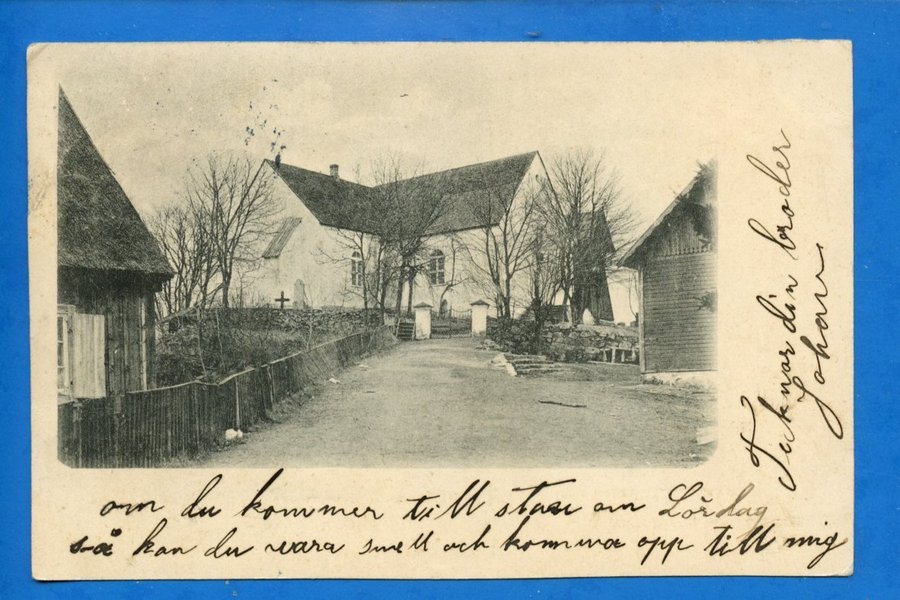 om du kommer till stan om Lördag
så kan du vara snell och komma opp till mig
Tecknar din broder
Johan